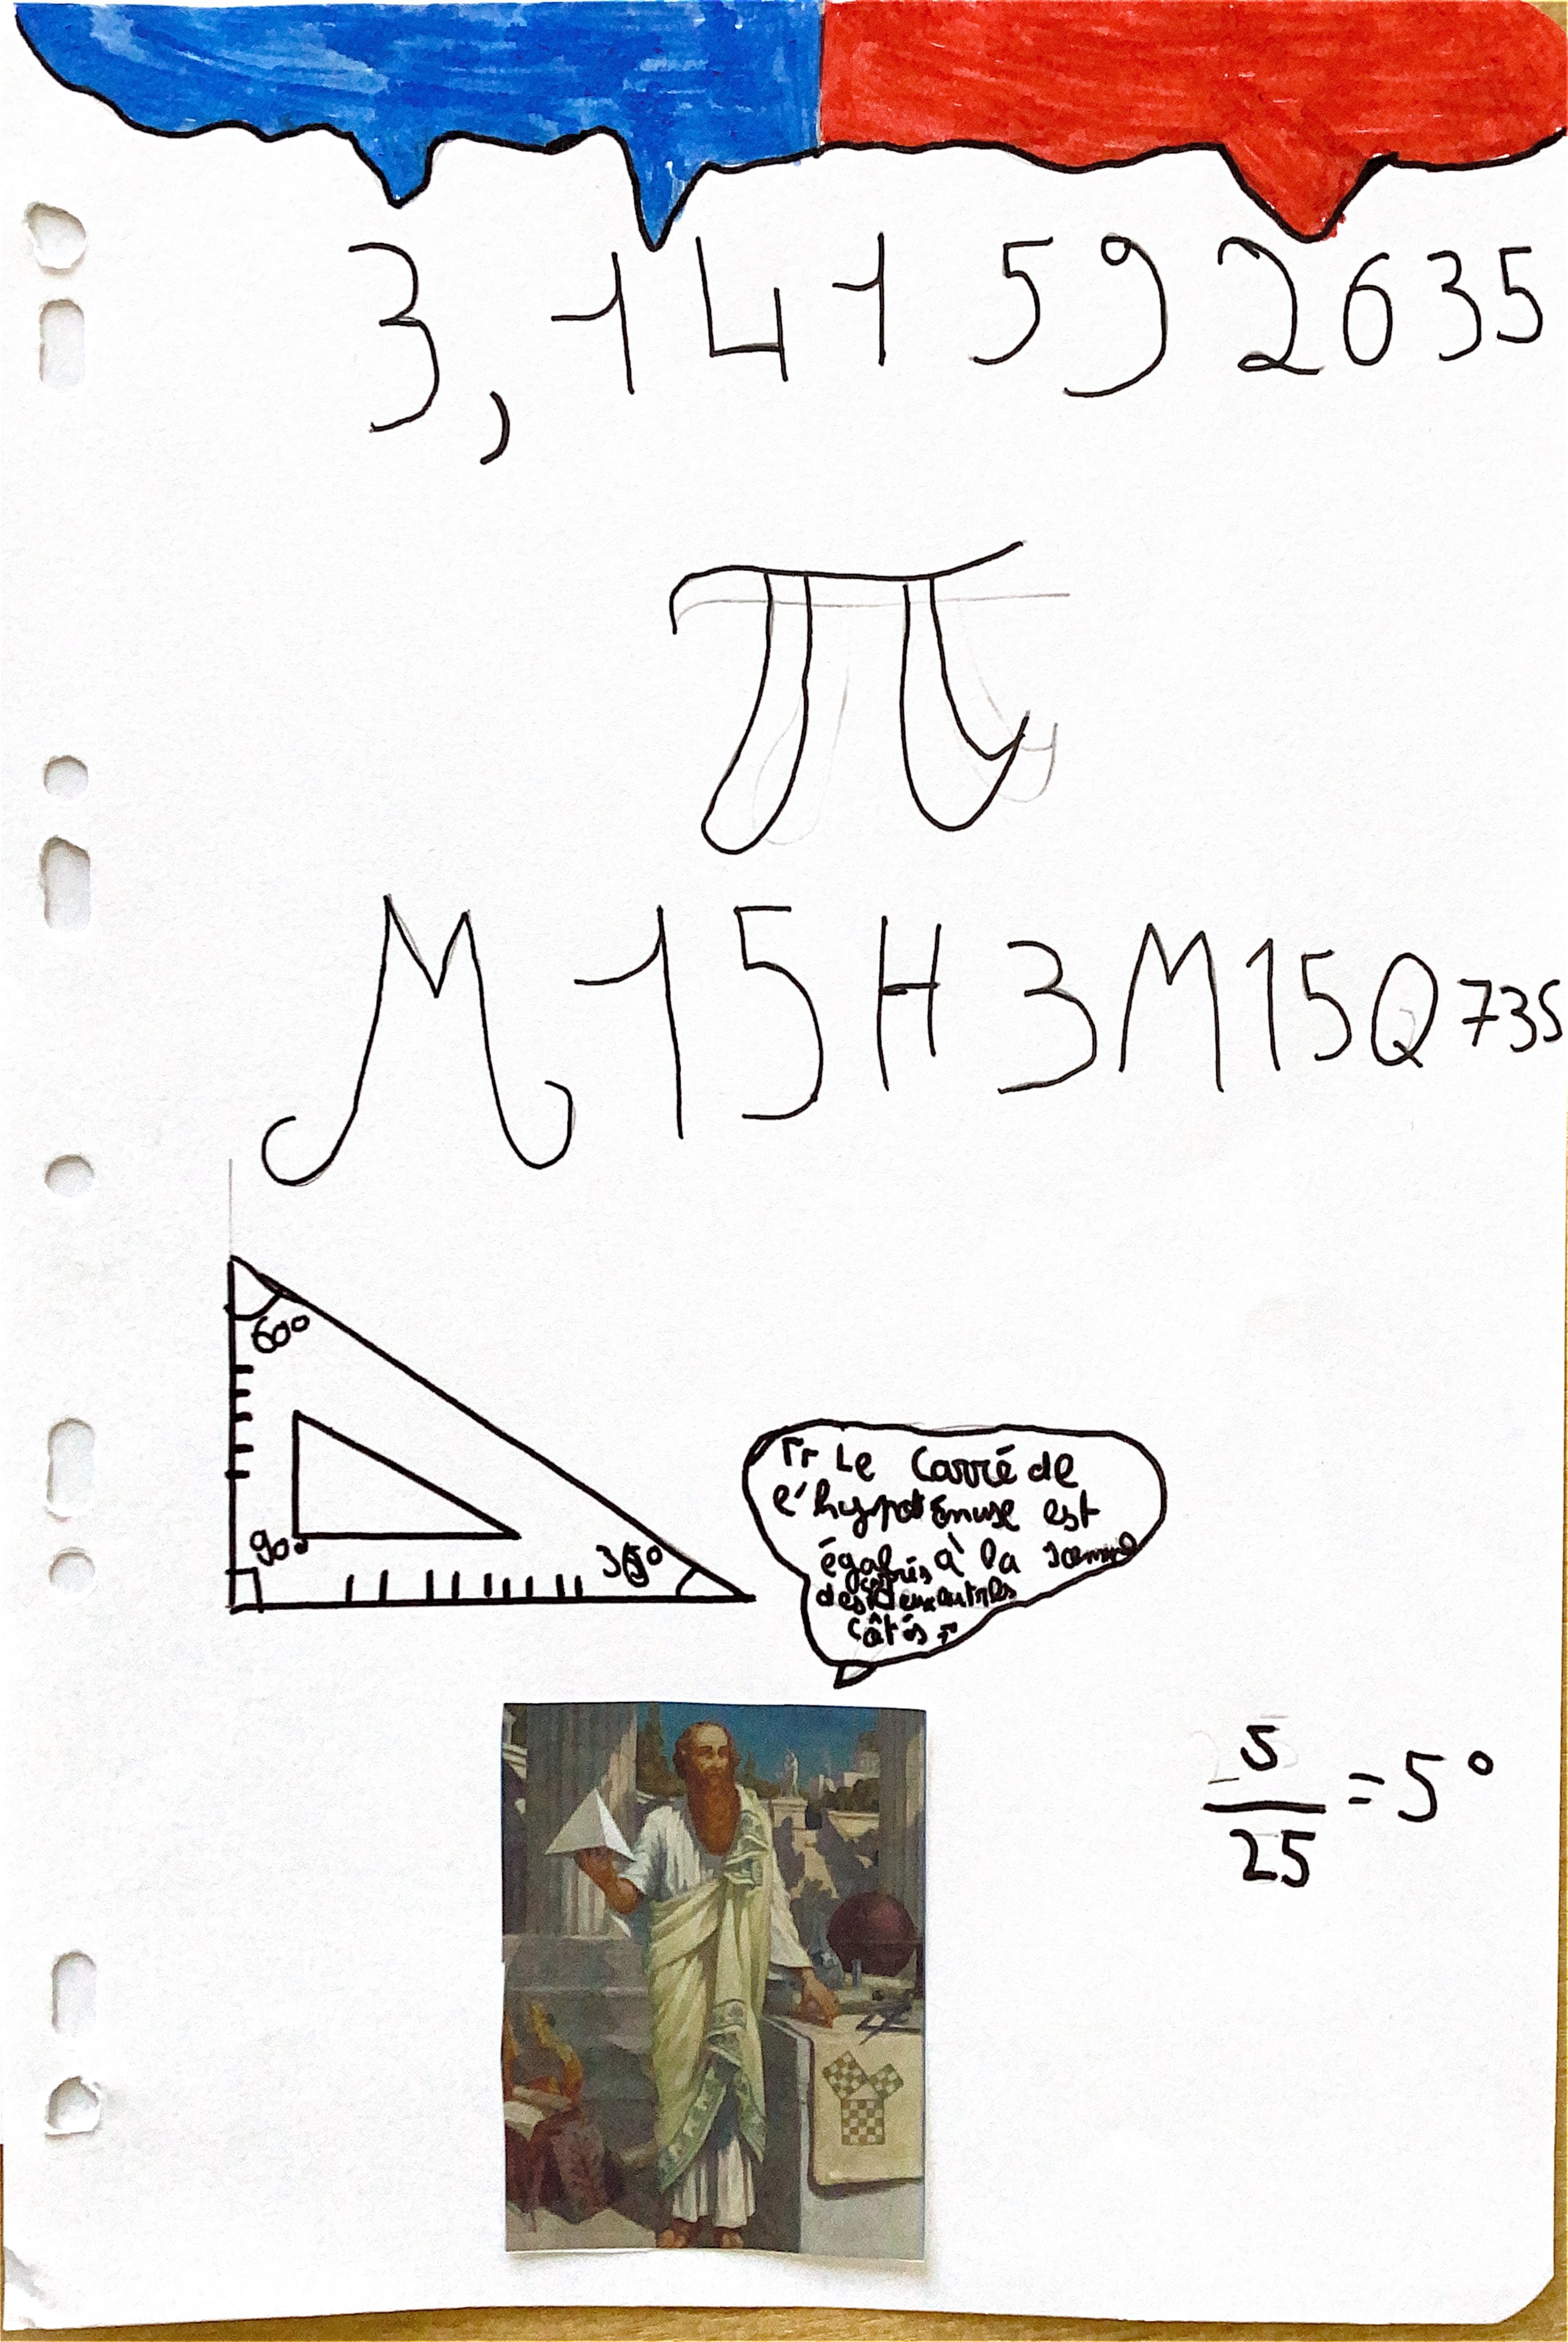 3,141592635
π
M15H3M15Q73S
60°
90°
30°
" Le Carré de
l'hypoténuse est
égal à la somme
carrés
des deux autres
côtés "
5
25
=5°